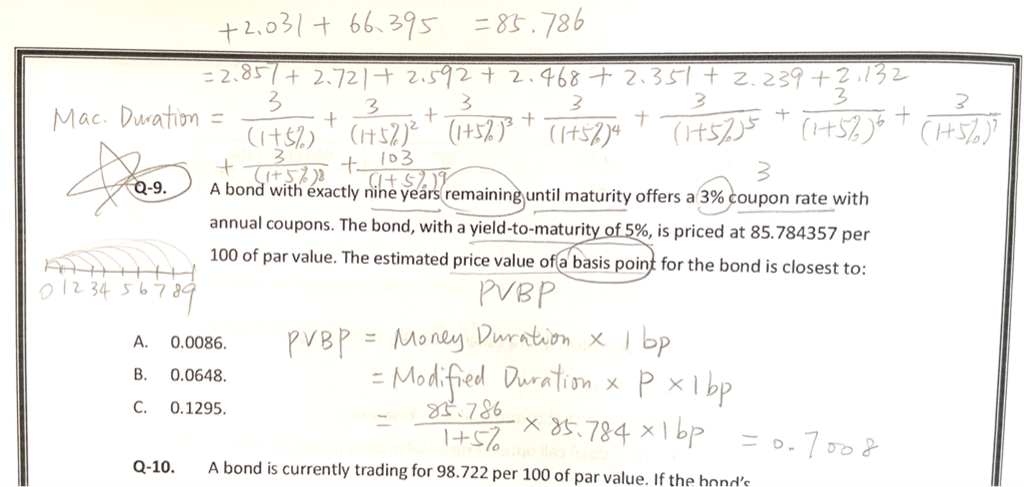 +2.031 + 66.395 = 85.786
= 2.857 + 2.721 + 2.592 + 2.468 + 2.351 + 2.239 + 2.132
Mac. Duration = 3/(1+5%) + 3/(1+5%)² + 3/(1+5%)³ + 3/(1+5%)⁴ + 3/(1+5%)⁵ + 3/(1+5%)⁶ + 3/(1+5%)⁷
+ 3/(1+5%)⁸ + 103/(1+5%)⁹
3
Q-9. A bond with exactly nine years remaining until maturity offers a 3% coupon rate with
annual coupons. The bond, with a yield-to-maturity of 5%, is priced at 85.784357 per
100 of par value. The estimated price value of a basis point for the bond is closest to:
0 1 2 3 4 5 6 7 8 9
PVBP
A. 0.0086.
B. 0.0648.
C. 0.1295.
PVBP = Money Duration × 1 bp
= Modified Duration × P × 1 bp
= 85.786/1+5% × 85.784 × 1 bp = 0.7008
Q-10. A bond is currently trading for 98.722 per 100 of par value. If the bond's